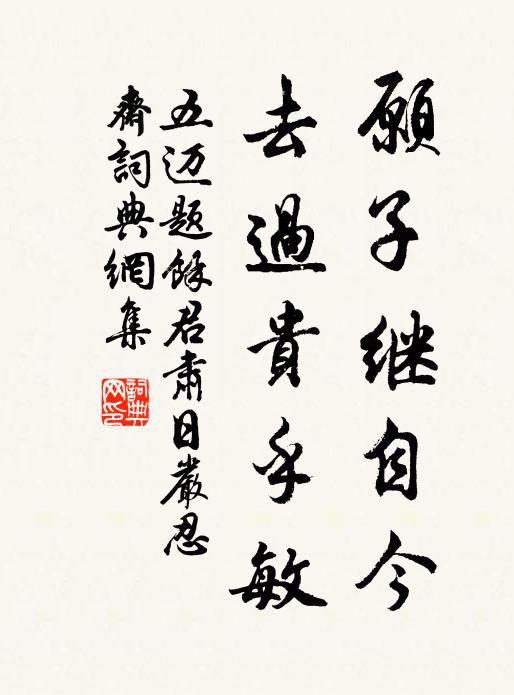 願子继自今
去過貴乎敏
五迈题餘君肅日嚴忍
齋詞典網集
詞典
网印